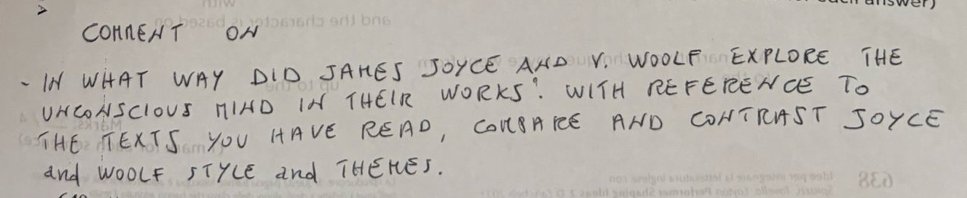 COMMENT ON
- IN WHAT WAY DID JAMES JOYCE AND V. WOOLF EXPLORE THE
UNCONSCIOUS MIND IN THEIR WORKS? WITH REFERENCE TO
THE TEXTS YOU HAVE READ, COMPARE AND CONTRAST JOYCE
and WOOLF STYLE and THEMES.